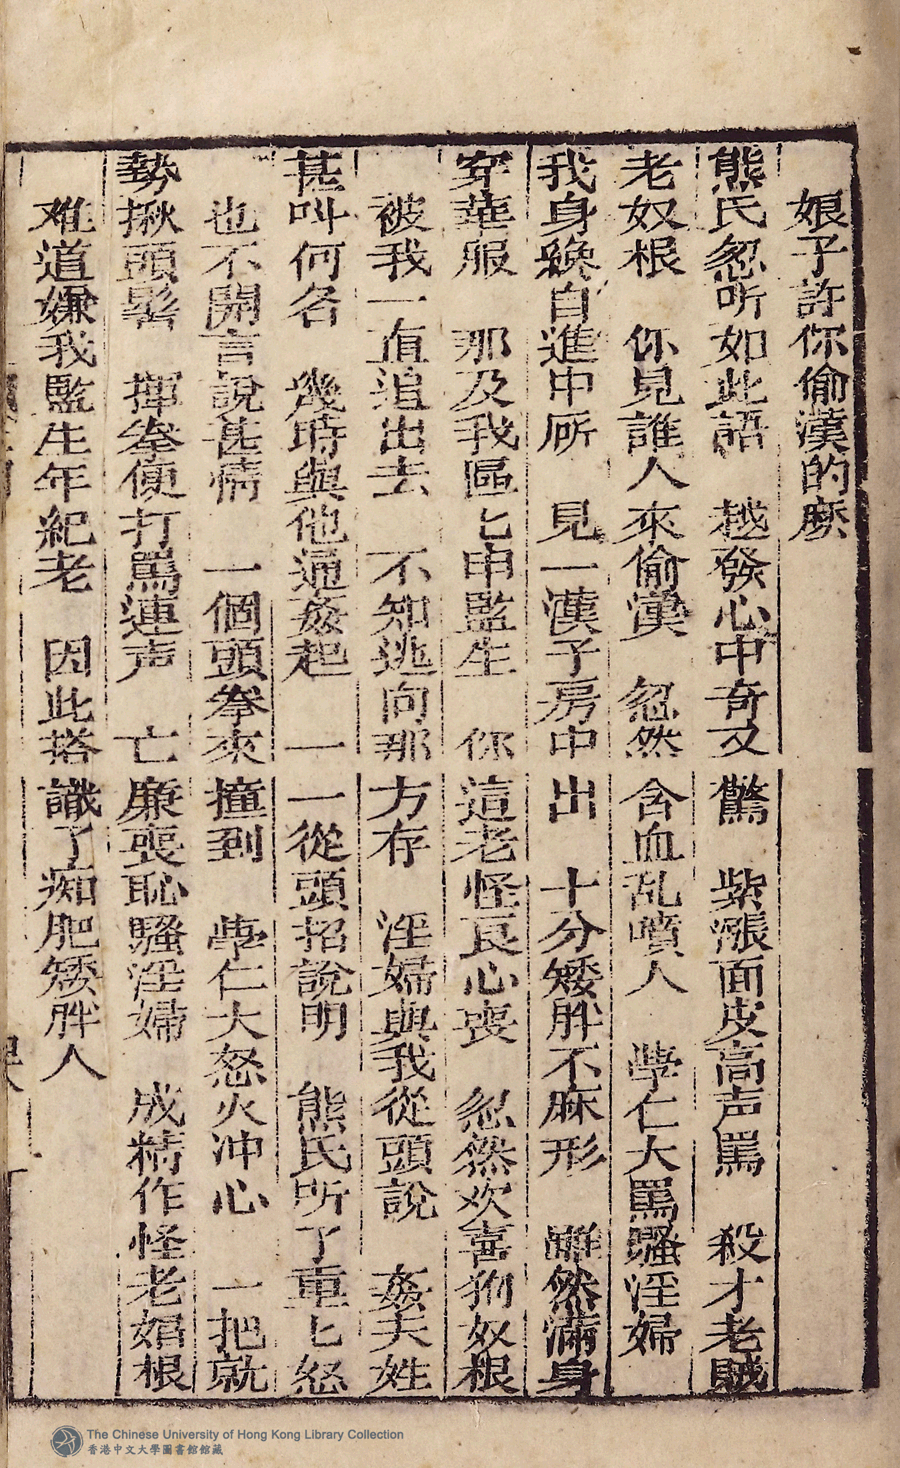 娘子許你偷漢的麽
熊氏忽听如此語　越發心中奇又驚　紫漲面皮高声罵　殺才老賊
老奴根　你見誰人來偷漢　忽然含血乱噴人　斈仁大罵騷淫婦
我身纔自進中𠩄　見一漢子房中出　十分矮胖不麻形　雖然滿身
穿華服　那及我區匕申監生　你這老怪良心喪　忽然欢喜狗奴根
被我一直追出去　不知逃向那方存　淫婦與我從頭說　姦夫姓
甚叫何名　幾時與他通姦起　一一從頭招說明　熊氏听了重匕怒
也不開言說甚情　一個頭拳來撞到　斈仁大怒火冲心　一把就
勢揪頭髻　揮拳便打罵連声　亡廉喪恥騷淫婦　成精作怪老娼根
难道嫌我監生年紀老　因此搭識了痴肥矮胖人
The Chinese University of Hong Kong Library Collection
香港中文大學圖書館館藏